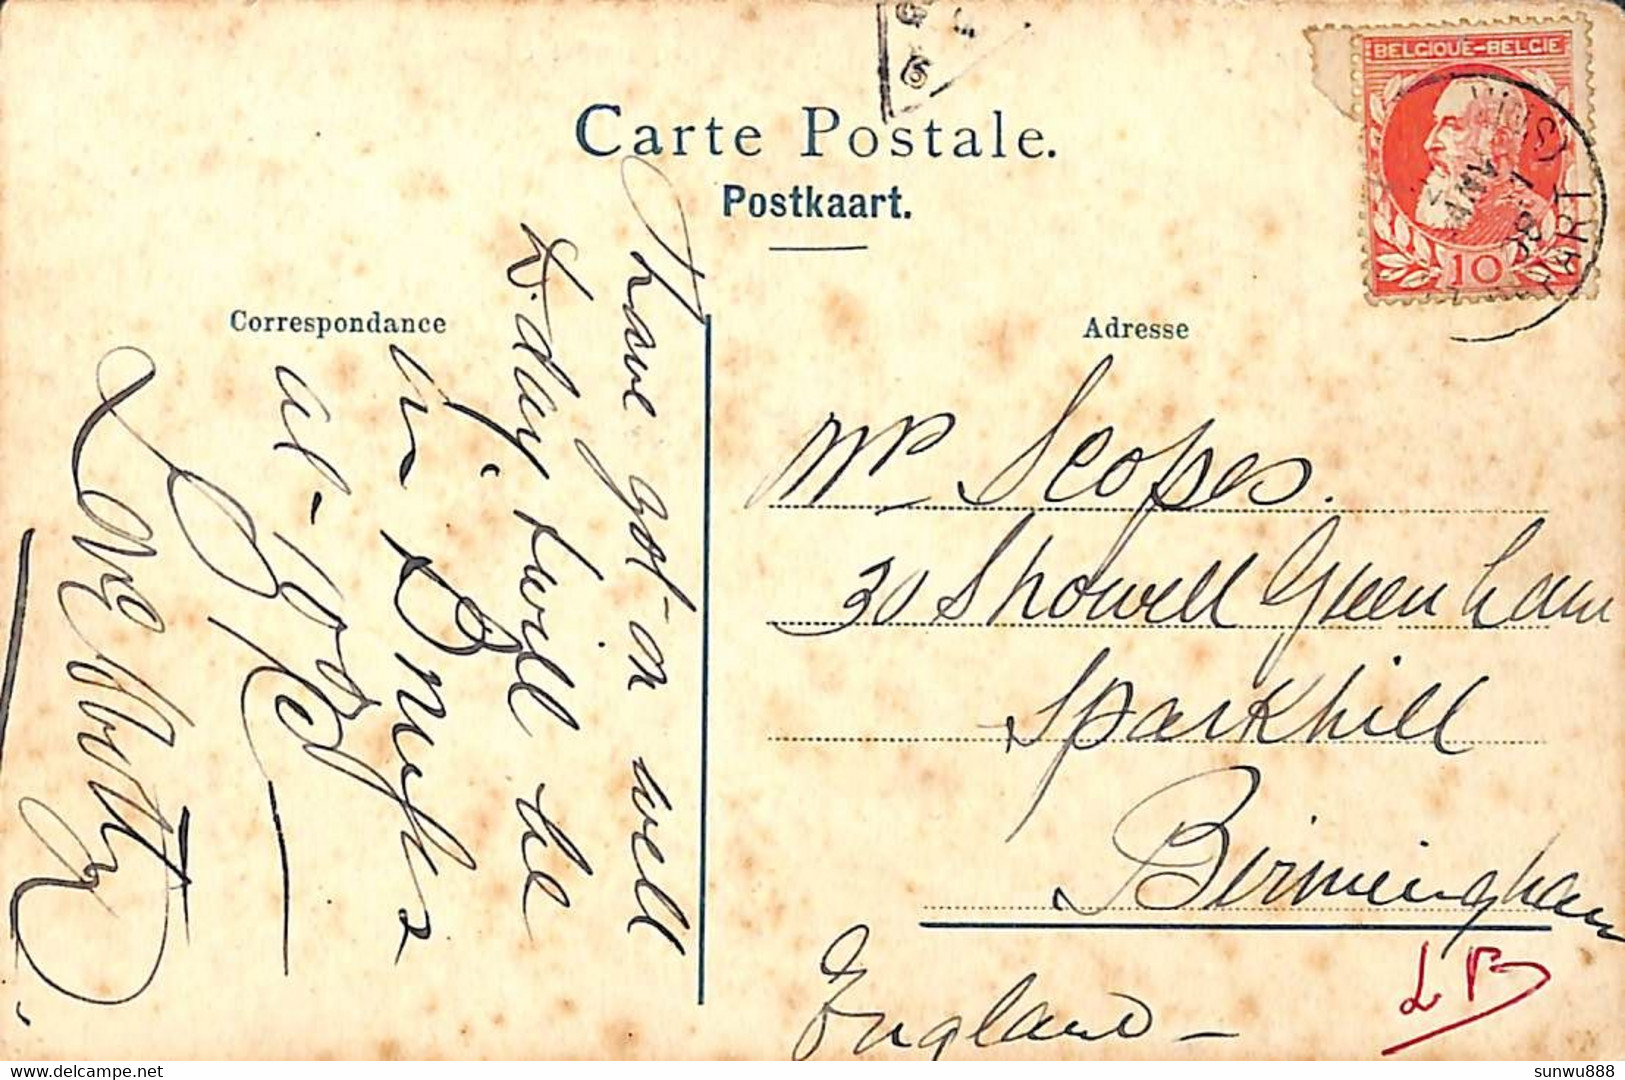 Carte Postale.
Postkaart.
Correspondance
Adresse
BELGIQUE-BELGIË
10
Have got on well
to-day & will be
in Brussels
at
Love
Mr Scopes.
30 Showell Green Lane
Sparkhill
Birmingham
England
LB
www.delcampe.net
sunwu888